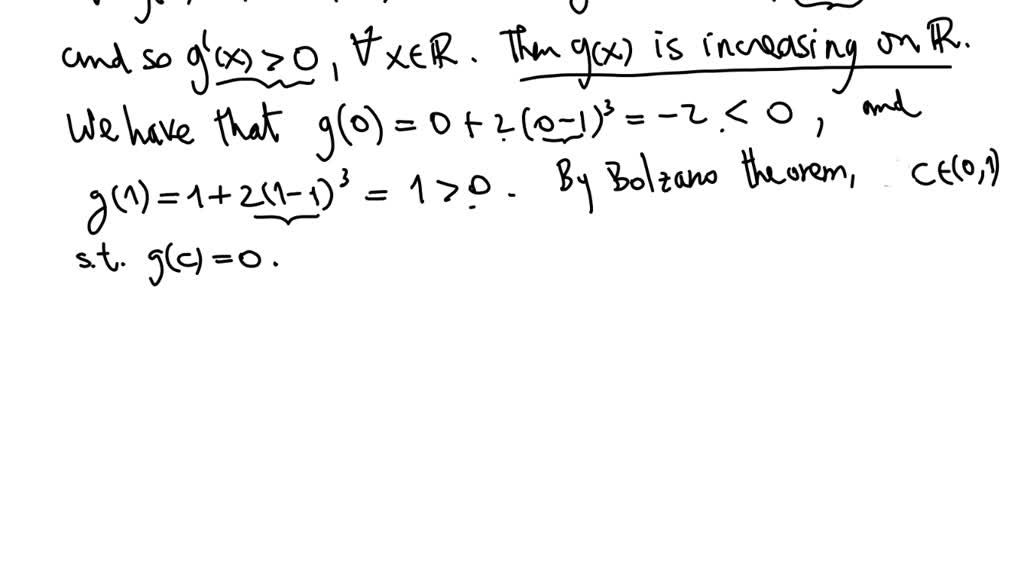 and so g'(x) > 0, ∀ x∈ℝ. Then g(x) is increasing on ℝ.
We have that g(0) = 0 + 2(0-1)³ = -2 < 0, and
g(1) = 1 + 2(1-1)³ = 1 > 0. By Bolzano theorem, c∈(0,1)
s.t. g(c) = 0.